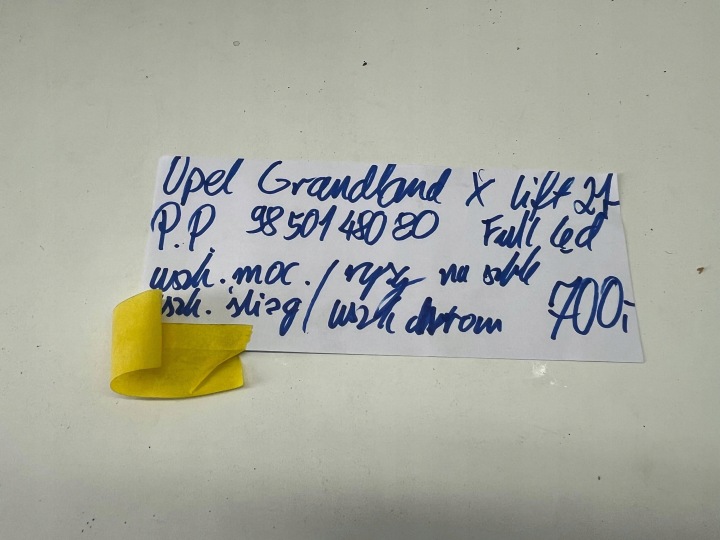 Opel Grandland X lift 21-
P.P. 98 501 480 80 Full led
uszk. moc. / rysy na szkle
uszk. ślizg / uszk chrom 700,-